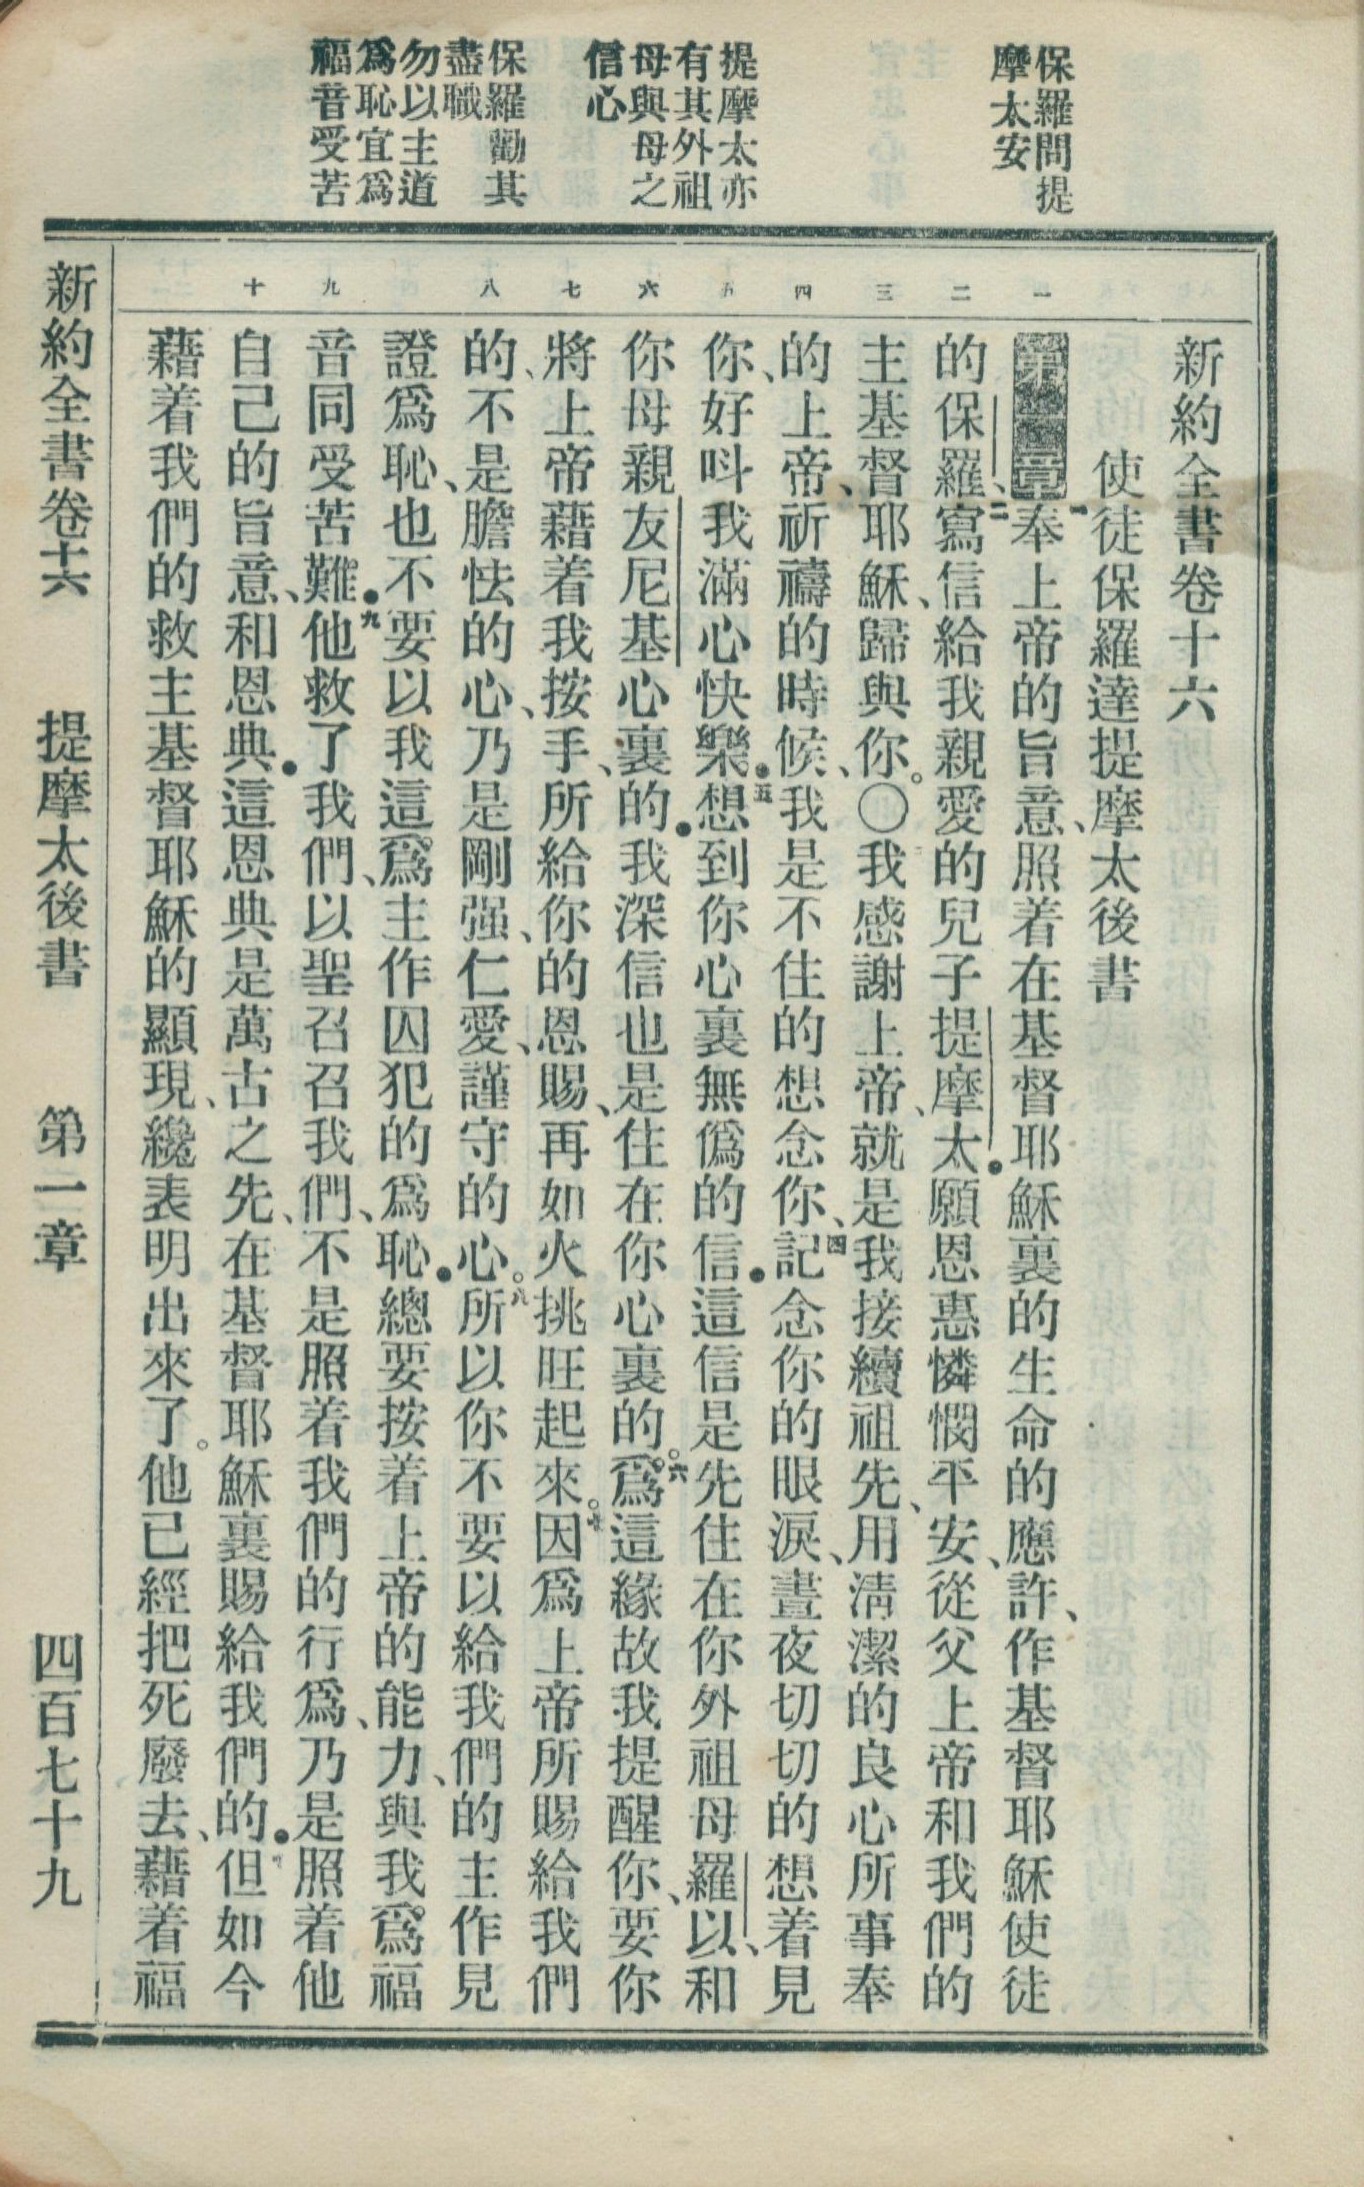 保羅問提
摩太安
提摩太亦
有其外祖
母與母之
信心
保羅勸其
盡職
勿以主道
爲恥宜爲
福音受苦
一 二 三 四 五 六 七 八 九 十
新約全書卷十六
使徒保羅達提摩太後書
第一章一奉上帝的旨意、照着在基督耶穌裏的生命的應許、作基督耶穌使徒
的保羅、二寫信給我親愛的兒子提摩太●願恩惠憐憫平安、從父上帝和我們的
主基督耶穌、歸與你。〇我感謝上帝、就是我接續祖先、用淸潔的良心所事奉
的上帝、祈禱的時候、我是不住的想念你、四記念你的眼淚、晝夜切切的想着見
你、好呌我滿心快樂●五想到你心裏無僞的信●這信是先住在你外祖母羅以、和
你母親友尼基心裏的●我深信也是住在你心裏的。六爲這緣故我提醒你、要你
將上帝藉着我按手、所給你的恩賜、再如火挑旺起來。七因爲上帝所賜給我們
的、不是膽怯的心、乃是剛强、仁愛、謹守的心。八所以你不要以給我們的主作見
證爲恥、也不要以我這爲主作囚犯的爲恥●總要按着上帝的能力、與我爲福
音同受苦難●九他救了我們、以聖召召我們、不是照着我們的行爲、乃是照着他
自己的旨意、和恩典●這恩典是萬古之先、在基督耶穌裏賜給我們的●十但如今
藉着我們的救主基督耶穌的顯現、纔表明出來了。他已經把死廢去、藉着福
新約全書卷十六　提摩太後書　第一章　四百七十九